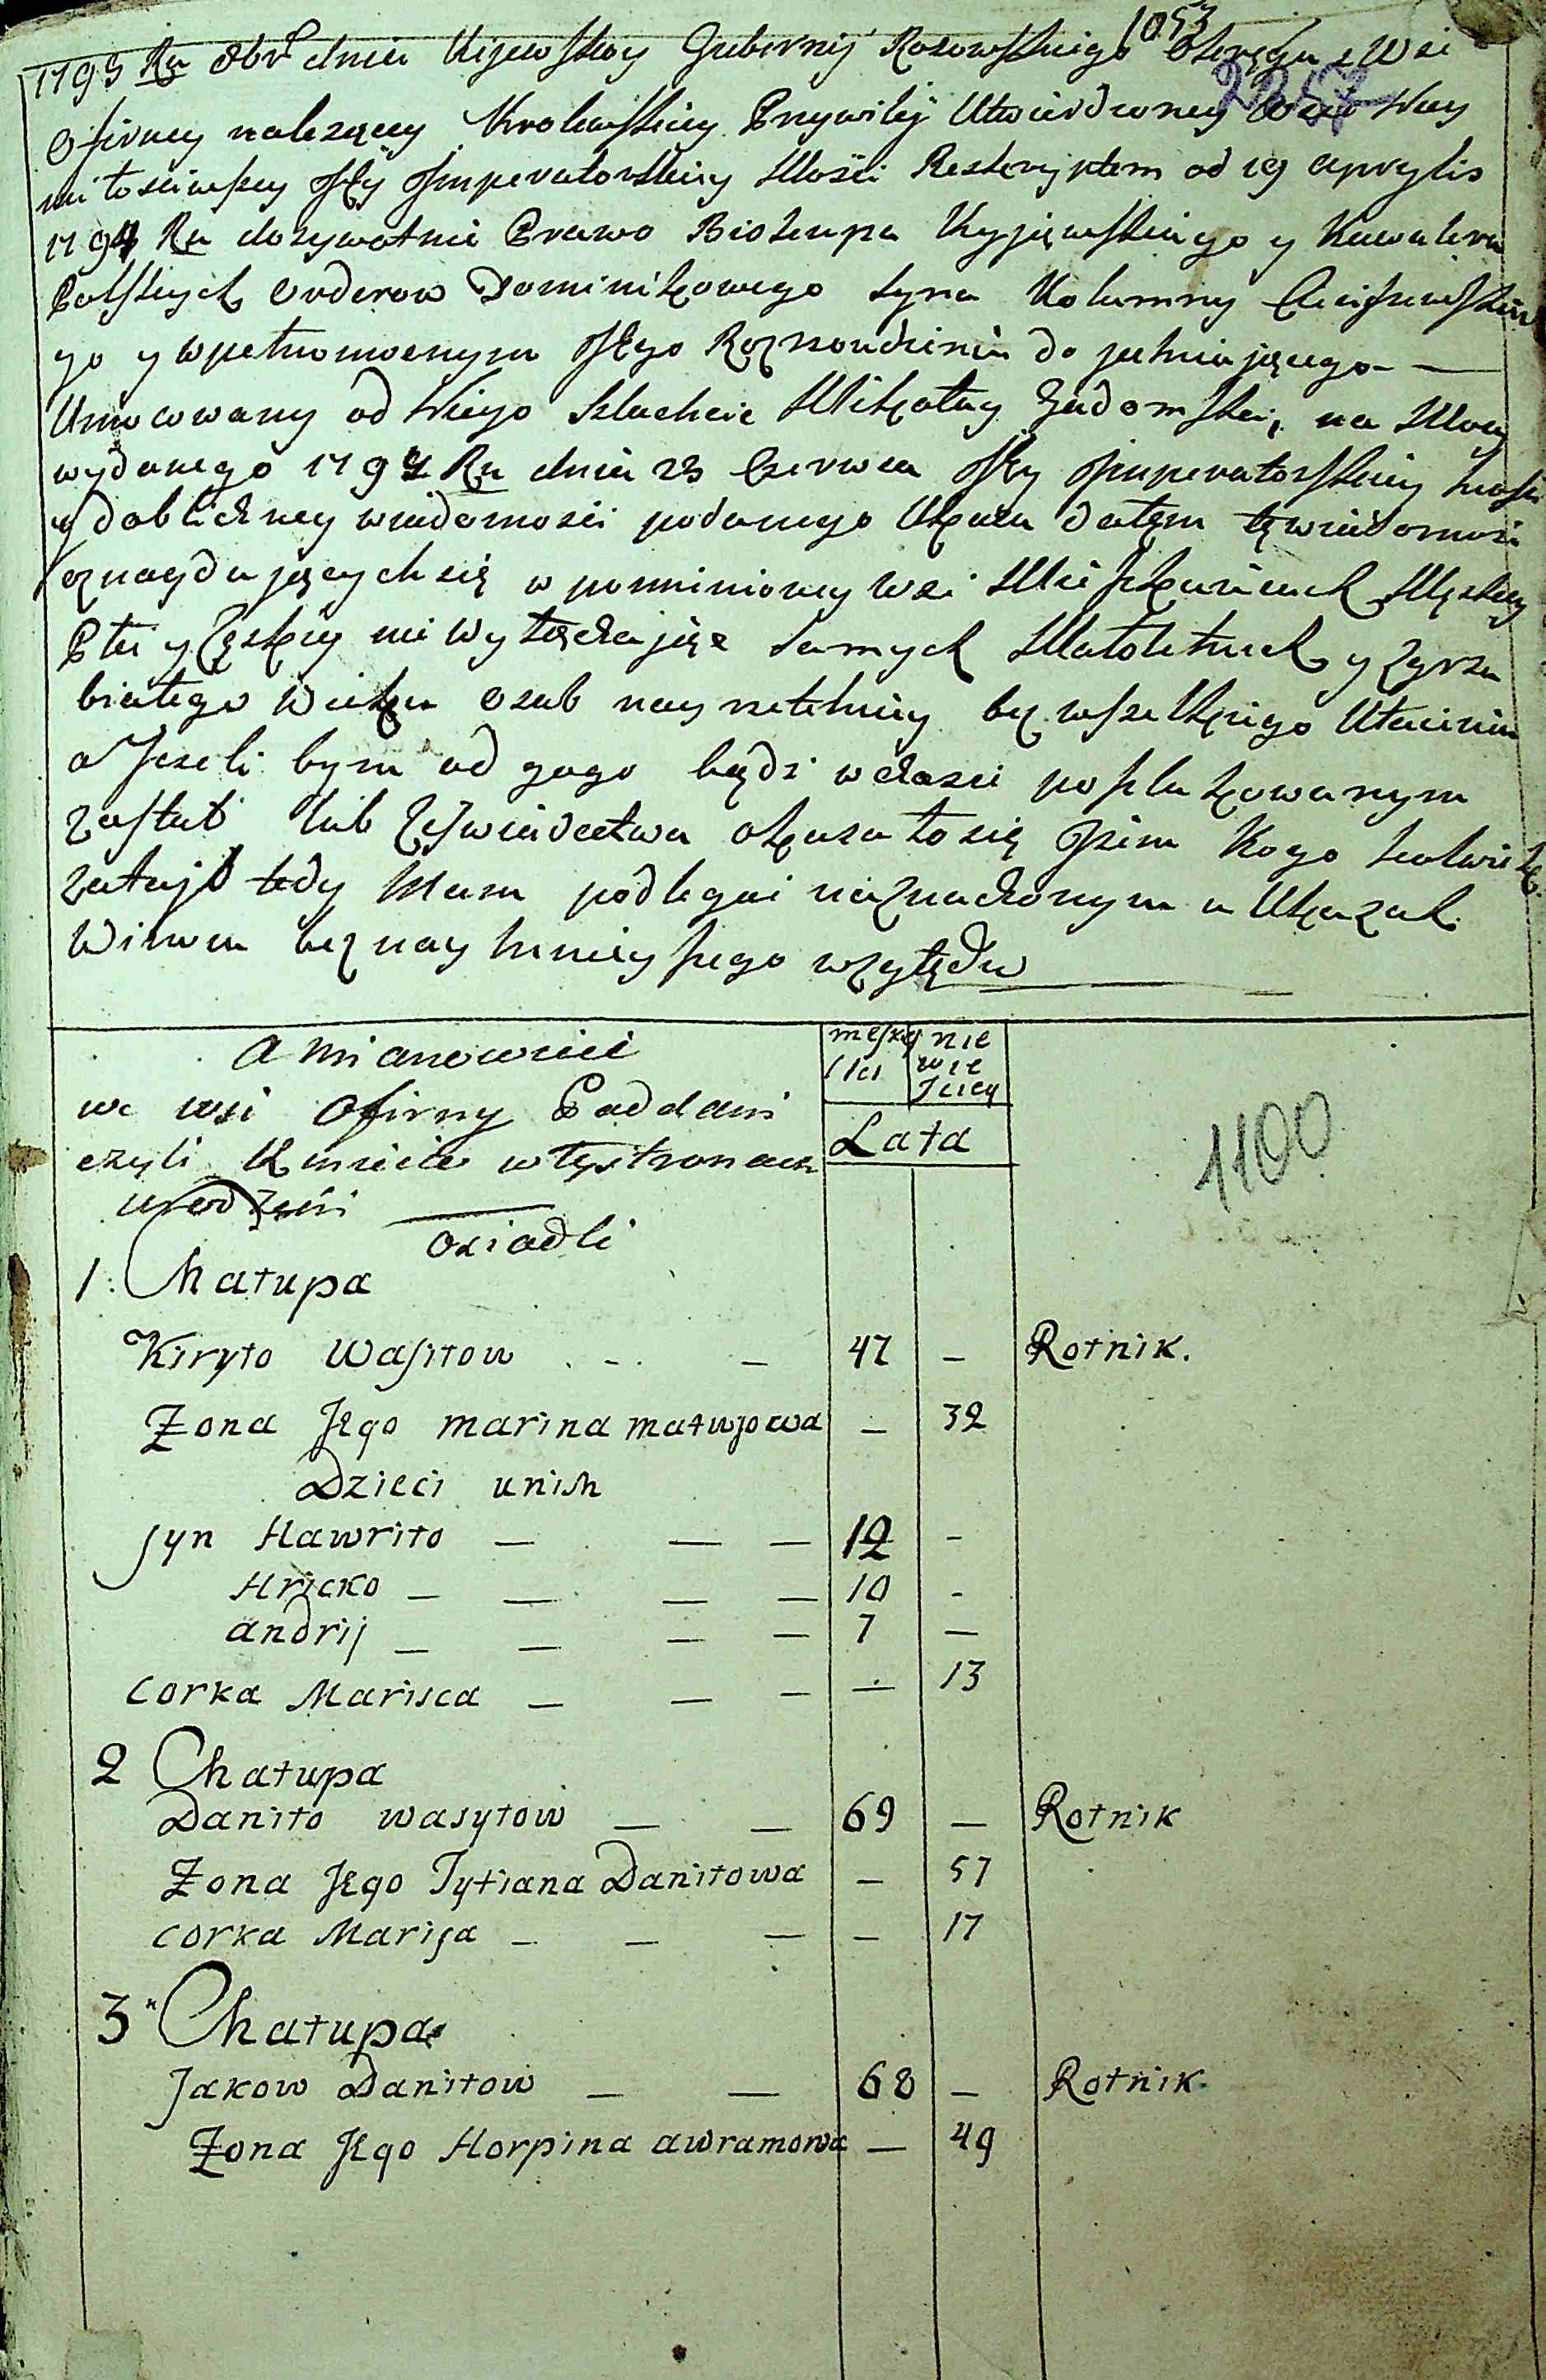 1053
1795 Ru 8br dnia Kijewskoy Gubernij Rosowskiego Okręgu z Wsi
2257
Ofirney nalezącey Krolewskiey Prywiley Utwierdzoney Oraz Nay
miłosciwszey Jey Imperatorskiey Mosci Reskryptem od 19 Aprylis
1794 Ru dozywotnie Prawo Biskupa Kyjęwskiego y Kawalera
Polskych Orderow Dominikowego syna Kolumny Cieciszewskie
go y w pełnomocnym Jego Rozrondzeniu do pełniającego —
Umocowany od Niego Szlachcic Mikołay Gadomski, na Mocy
wydanego 1794 Ru dnia 23 Czerwca Jey Imperatorskiey Mosci
y do blicżney wiadomosci podanego Ukazu datęm tę wiadomosc
oznaydujących się w pomnioney Wsi Mieszkańcach Męskiey
Płci y Zęskiey nie wyłęcżając samych Małoletnich y Zgrzy
białego Wieku Osub nayrzetelniey bez wszelkiego Utaienia
a Jezeli bym od gogo bądz w cżasie poszlakowanym
został lub Zeswiadectwa okazało się Jzem Kogo kolwiek
zataił tedy Mam podlegac naznacżonym w Ukazach
Winom bez naymnieyszego względu
A mianowicie
we wsi Ofirny Poddani
czyli Kmiecie w tych stronach
urodzeni
osiadli
męskey płci
niewiesciey
Lata
1100
1. Chałupa
Kiryło Wasiłow - - 47 — Rolnik.
Zona Jego marina matwjowa — 32
Dzieci unich
syn Hawriło — — — 12 -
Hricko — — — — 10 -
andrij — — — — 7 —
corka Marisca — — — — 13
2 Chałupa
Daniło wasyłow — — 69 — Rolnik
Zona Jego Tytiana Daniłowa — 57
corka Marija — — — — 17
3 Chałupa
Jakow Daniłow — — 68 — Rolnik
Zona Jego Horpina awramowa — 49